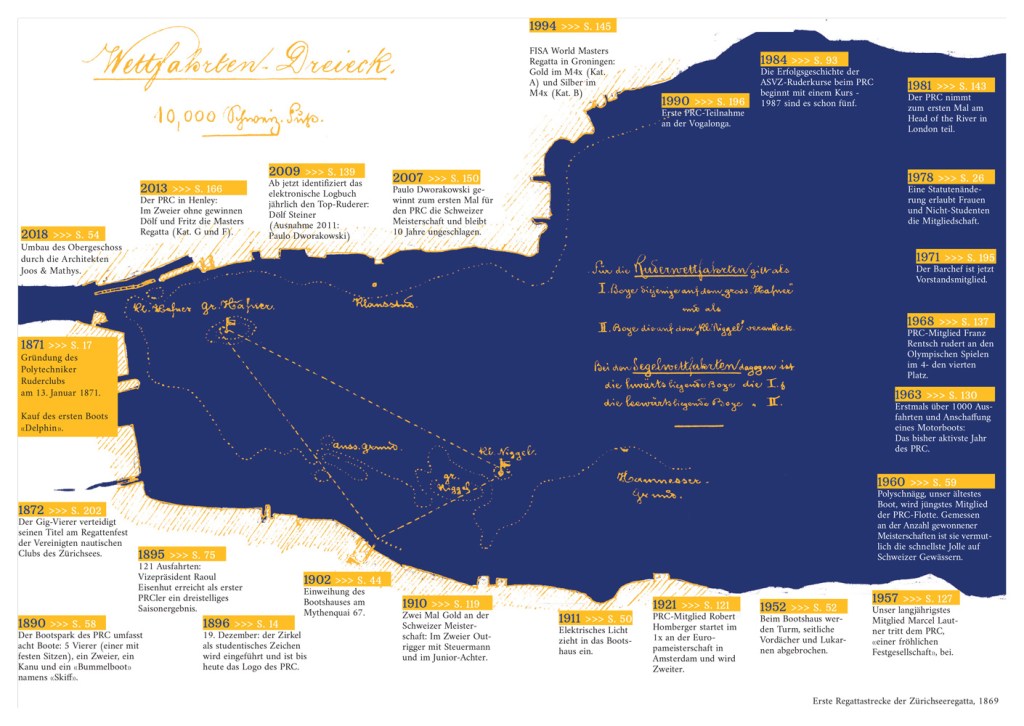 Wettfahrten-Dreieck.
10,000 Schweiz. Fuß.
1994 >>> S. 145
FISA World Masters
Regatta in Groningen:
Gold im M4x (Kat.
A) und Silber im
M4x (Kat. B)
1990 >>> S. 196
Erste PRC-Teilnahme
an der Vogalonga.
1984 >>> S. 93
Die Erfolgsgeschichte der
ASVZ-Ruderkurse beim PRC
beginnt mit einem Kurs -
1987 sind es schon fünf.
1981 >>> S. 143
Der PRC nimmt
zum ersten Mal am
Head of the River in
London teil.
2018 >>> S. 54
Umbau des Obergeschoss
durch die Architekten
Joos & Mathys.
2013 >>> S. 166
Der PRC in Henley:
Im Zweier ohne gewinnen
Dölf und Fritz die Masters
Regatta (Kat. G und F).
2009 >>> S. 139
Ab jetzt identifiziert das
elektronische Logbuch
jährlich den Top-Ruderer:
Dölf Steiner
(Ausnahme 2011:
Paulo Dworakowski)
2007 >>> S. 150
Paulo Dworakowski ge-
winnt zum ersten Mal für
den PRC die Schweizer
Meisterschaft und bleibt
10 Jahre ungeschlagen.
1978 >>> S. 26
Eine Statutenände-
rung erlaubt Frauen
und Nicht-Studenten
die Mitgliedschaft.
1971 >>> S. 195
Der Barchef ist jetzt
Vorstandsmitglied.
kl. Hafner gr. Hafner.
Für die Ruderwettfahrten gilt als
I. Boye diejenige auf dem gross. Hafner"
wie als
II. Boye die auf dem „Kl. Niggel" verankerte.
Bei den Segelwettfahrten dagegen ist
die luwärts liegende Boye die I. &
die leewärts liegende Boye " II.
1968 >>> S. 137
PRC-Mitglied Franz
Rentsch rudert an den
Olympischen Spielen
im 4- den vierten
Platz.
1963 >>> S. 130
Erstmals über 1000 Aus-
fahrten und Anschaffung
eines Motorboots:
Das bisher aktivste Jahr
des PRC.
1960 >>> S. 59
Polyschnägg, unser ältestes
Boot, wird jüngstes Mitglied
der PRC-Flotte. Gemessen
an der Anzahl gewonnener
Meisterschaften ist sie vermut-
lich die schnellste Jolle auf
Schweizer Gewässern.
1871 >>> S. 17
Gründung des
Polytechniker
Ruderclubs
am 13. Januar 1871.
Kauf des ersten Boots
«Delphin».
kl. Niggel.
gr.
Niggel.
1872 >>> S. 202
Der Gig-Vierer verteidigt
seinen Titel am Regattenfest
der Vereinigten nautischen
Clubs des Zürichsees.
1895 >>> S. 75
121 Ausfahrten:
Vizepräsident Raoul
Eisenhut erreicht als erster
PRCler ein dreistelliges
Saisonergebnis.
1890 >>> S. 58
Der Bootspark des PRC umfasst
acht Boote: 5 Vierer (einer mit
festen Sitzen), ein Zweier, ein
Kanu und ein «Bummelboot»
namens «Skiff».
1896 >>> S. 14
19. Dezember: der Zirkel
als studentisches Zeichen
wird eingeführt und ist bis
heute das Logo des PRC.
1902 >>> S. 44
Einweihung des
Bootshauses am
Mythenquai 67.
1910 >>> S. 119
Zwei Mal Gold an der
Schweizer Meister-
schaft: Im Zweier Out-
rigger mit Steuermann
und im Junior-Achter.
1911 >>> S. 50
Elektrisches Licht
zieht in das Boots-
haus ein.
1921 >>> S. 121
PRC-Mitglied Robert
Homberger startet im
1x an der Euro-
pameisterschaft in
Amsterdam und wird
Zweiter.
1952 >>> S. 52
Beim Bootshaus wer-
den Turm, seitliche
Vordächer und Lukar-
nen abgebrochen.
1957 >>> S. 127
Unser langjährigstes
Mitglied Marcel Laut-
ner tritt dem PRC,
«einer fröhlichen
Festgesellschaft», bei.
Erste Regattastrecke der Zürichseeregatta, 1869